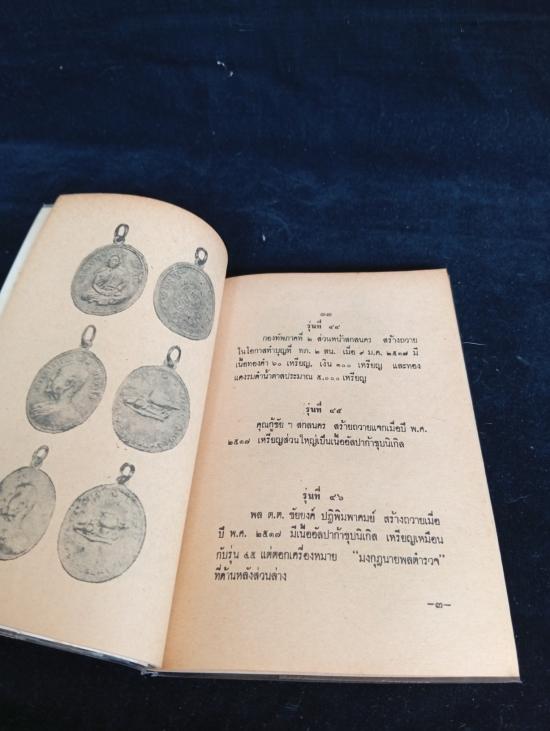 ๓๓
รุ่นที่ ๔๔
กองทัพภาคที่ ๒ ส่วนหน้าสกลนคร สร้างถวาย
ในโอกาสทำบุญที่ ทภ. ๒ สน. เมื่อ ๙ ม.ค. ๒๕๑๗ มี
เนื้อทองคำ ๖๐ เหรียญ, เงิน ๓๐๐ เหรียญ และทอง
แดงรมดำน้ำตาลประมาณ ๕,๐๐๐ เหรียญ
รุ่นที่ ๔๕
คุณกู้ชัย ฯ สกลนคร สร้ายถวายแจกเมื่อปี พ.ศ.
๒๕๑๗ เหรียญส่วนใหญ่เป็นเนื้ออัลปาก้าชุบนิเกิล
รุ่นที่ ๔๖
พล ต.ต. ชัยยงค์ ปฏิพิมพาคมย์ สร้างถวายเมื่อ
ปี พ.ศ. ๒๕๑๗ มีเนื้ออัลปาก้าชุบนิเกิล เหรียญเหมือน
กับรุ่น ๔๕ แต่ตอกเครื่องหมาย "มงกุฎนายพลตำรวจ"
ที่ด้านหลังส่วนล่าง
–๓–